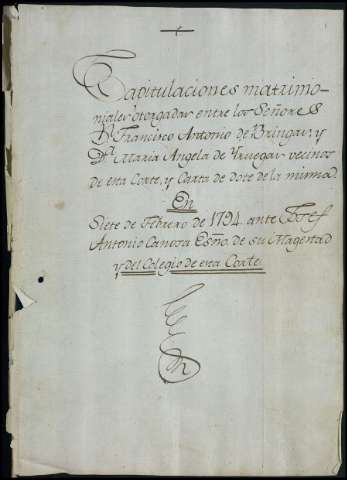 Capitulaciones matrimo-
niales otorgadas entre los Señores
Dn. Francisco Antonio de Bringas, y
Dª. Maria Angela de Yruegas vecinos
de esta Corte, y Carta de dote de la misma
En
Siete de Febrero de 1794 ante Josef
Antonio Canosa Esño. de su Magestad
y del Colegio de esta Corte